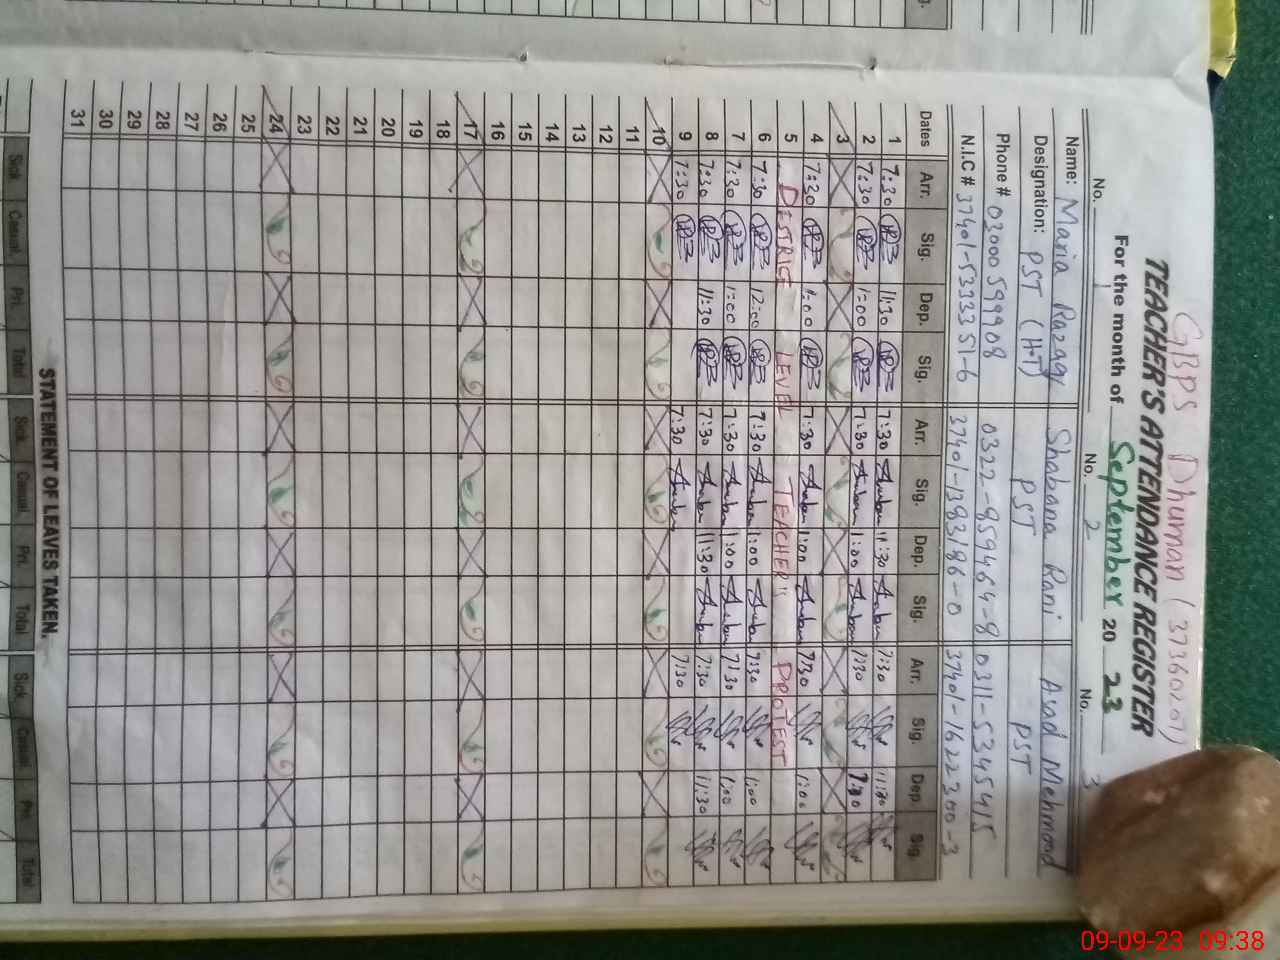 GBPS Dhuman (37360207)
TEACHER'S ATTENDANCE REGISTER
For the month of September 20 23
No. No. 2 No. 3
Name: Maria Razaqq Shabana Rani Asad Mehmood
Designation: PST (H.T) PST PST
Phone # 03000 599908 0322-859464-8 0311-5345415
N.I.C # 37401-5333351-6 37401-1383186-0 37401-1622300-3
Dates Arr. Sig. Dep. Sig. Arr. Sig. Dep. Sig. Arr. Sig. Dep. Sig.
1 7:30 11:30 7:30 11:30 7:30 11:30
2 7:30 1:00 7:30 1:00 7:30
3
4 7:20 1:00 7:30 1:00 7:30 1:00
5 DISTRICT LEVEL TEACHER'' PROTEST
6 7:30 12:00 7:30 1:00 7:30 1:00
7 7:30 1:00 7:30 1:00 7:30 1:00
8 7:30 11:30 7:30 11:30 7:30 11:30
9 7:30 7:30 7:30
10
11
12
13
14
15
16
17
18
19
20
21
22
23
24
25
26
27
28
29
30
31
STATEMENT OF LEAVES TAKEN.
Sick Casual Pri. Total Sick Casual Pri. Total Sick Casual Pri. Total
09-09-23 09:38